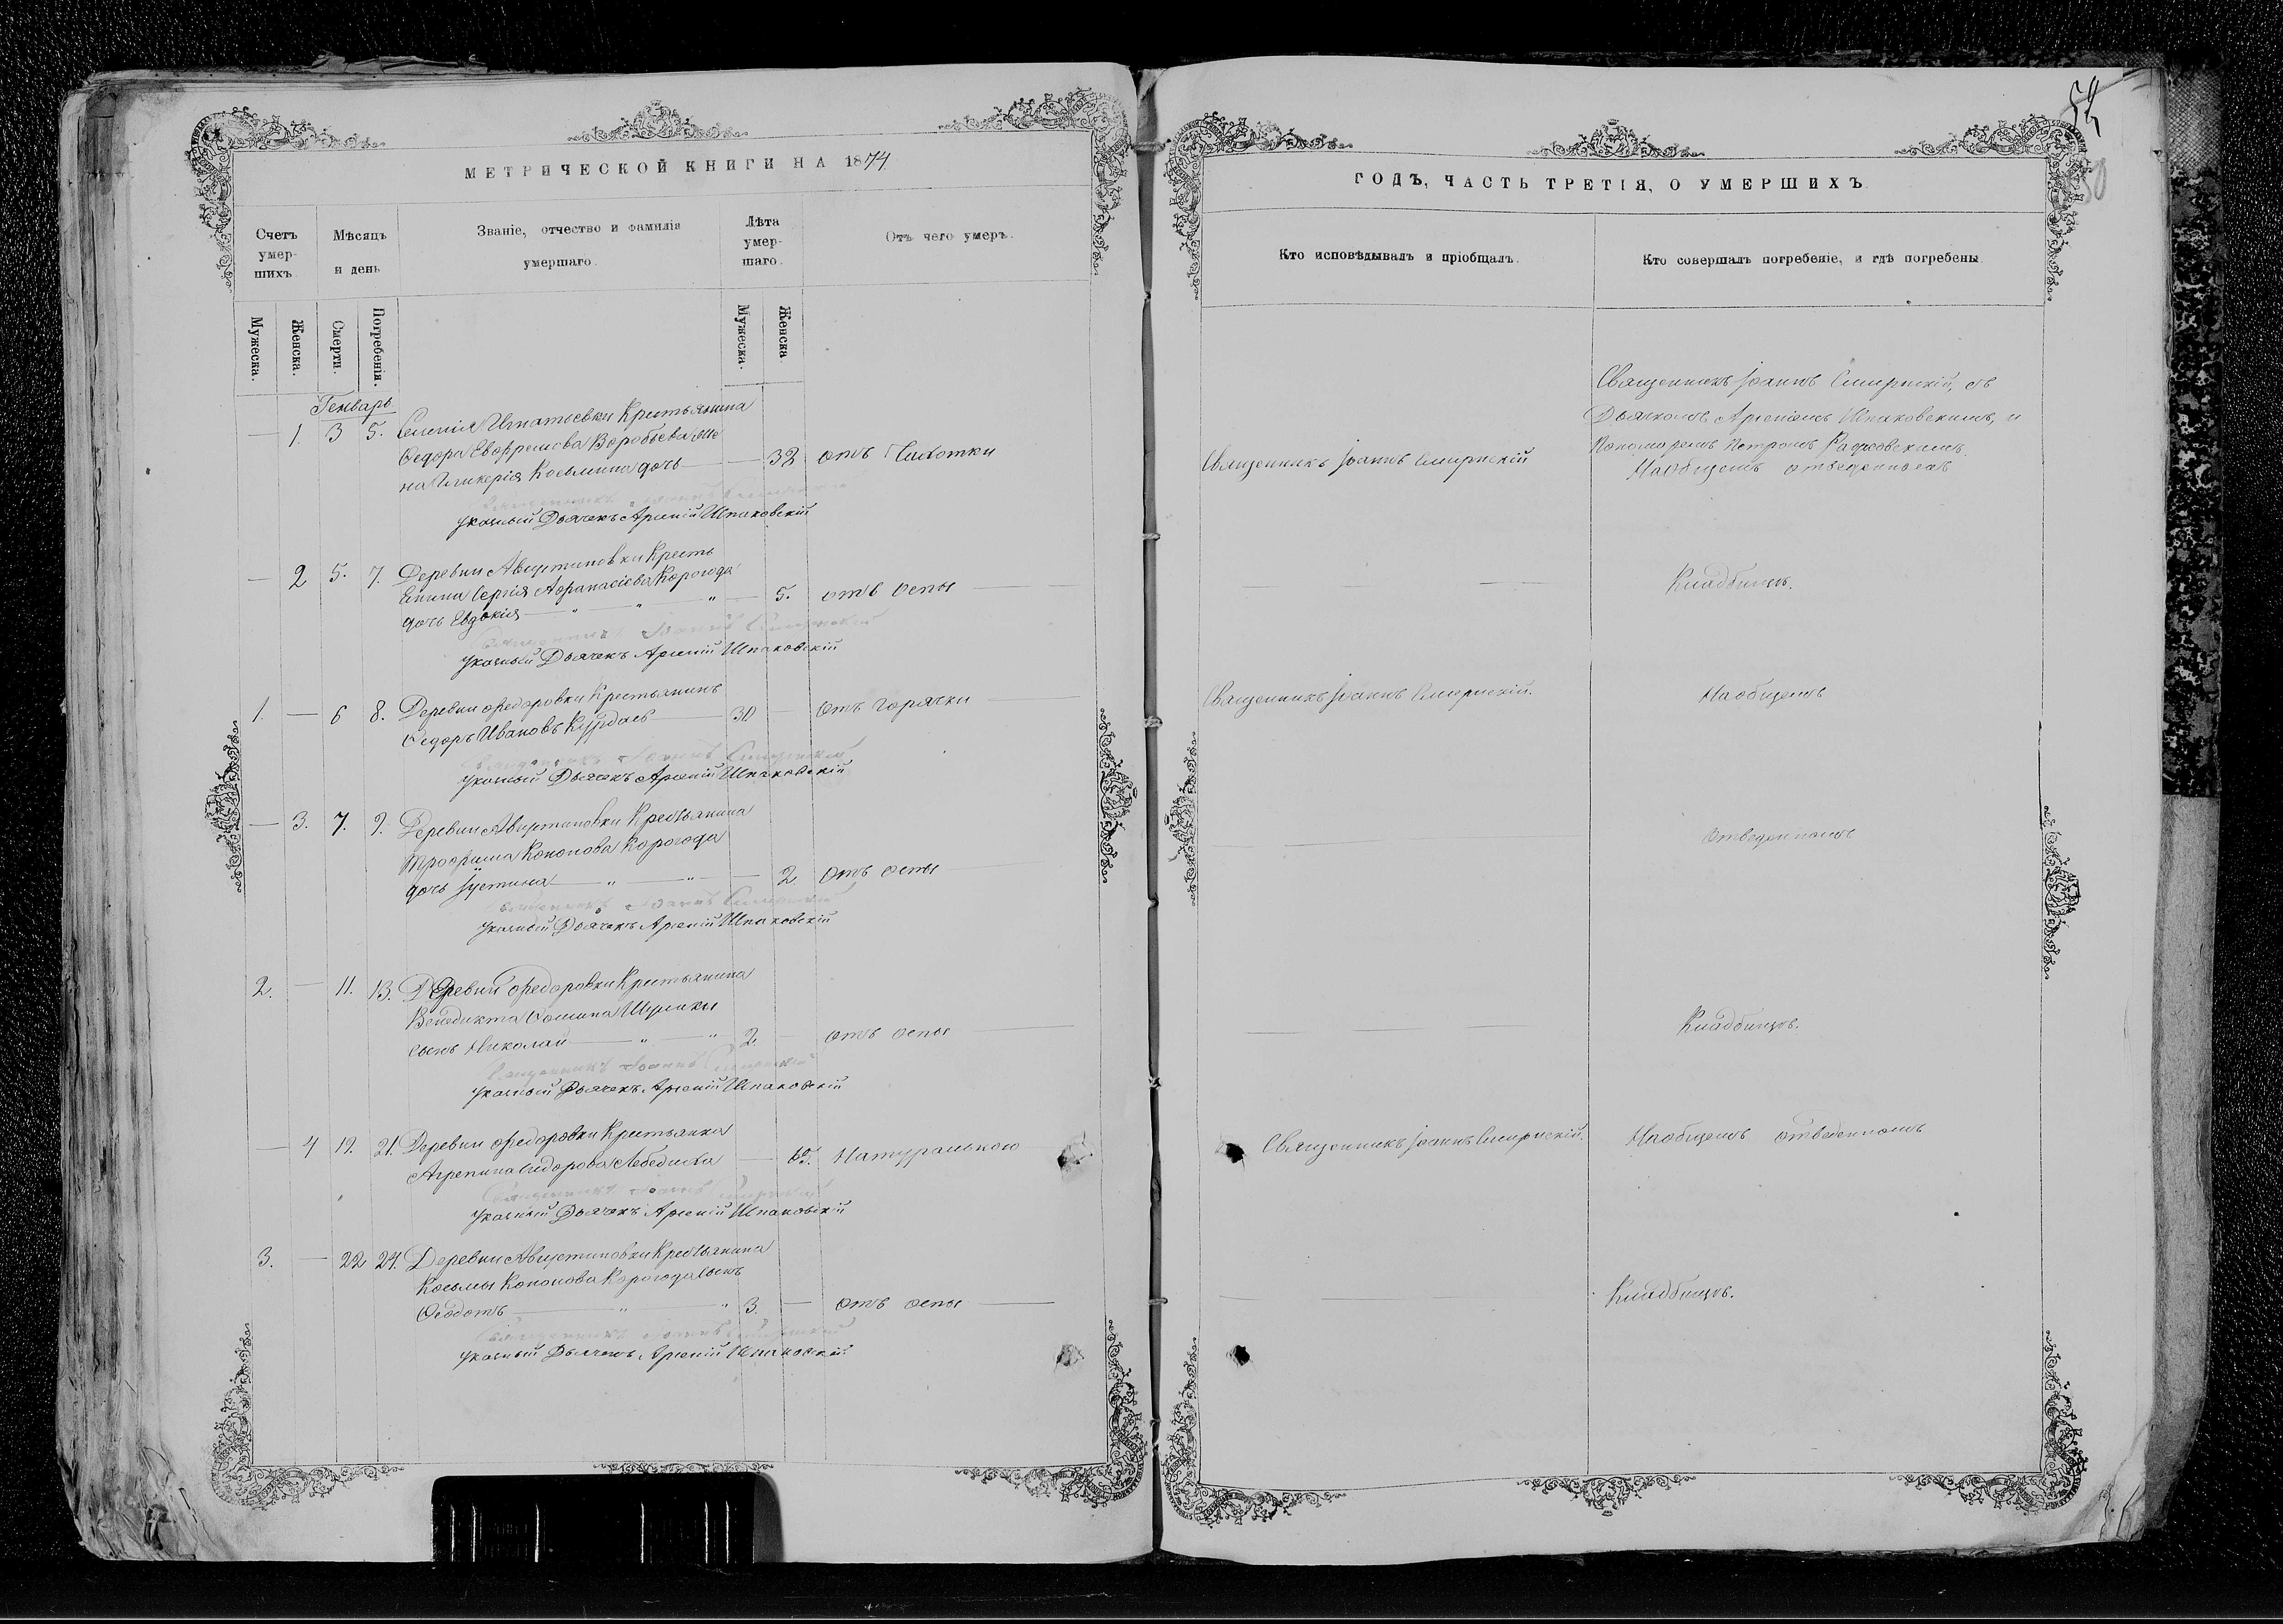 МЕТРИЧЕСКОЙ КНИГИ НА 1874
Счетъ умер-шихъ.
Мѣсяцъ и день
Званіе, отчество и фамилія умершаго.
Лѣта умер-шаго.
Отъ чего умеръ.
Мужеска.
Женска.
Смерти.
Погребенія.
Мужеска.
Женска
Генварь
— 1. 3 5. Игнатіевки Крестьянина
Ѳедора Воробьева
на Гликерія Косьмина дочь — 32 отъ Чихотки
Указный Дьячекъ Арсеній Шпаковскій
— 2 5. 7. Деревни Августиновки Кресть
янина Сергія Аѳанасіева Корогода
дочь Евдокія — " — " — " — 5. отъ оспы —
Священникъ Іоаннъ Смирнскій
Указный Дьячекъ Арсеній Шпаковскій
1. — 6 8. Деревни Федоровки Крестьянинъ
Ѳедоръ Ивановъ — 30 — отъ горячки —
Священникъ Іоаннъ Смирнскій
Указный Дьячекъ Арсеній Шпаковскій
— 3. 7. 9. Деревни Августиновки Крестьянина
Трофима Кононова Корогода
дочь Іустина — " — " — 2. отъ оспы —
Священникъ Іоаннъ Смирнскій
Указный Дьячекъ Арсеній Шпаковскій
2. — 11. 13. Деревни Федоровки Крестьянина
Венедикта Ѳомина
сынъ Николай — " — " 2. — отъ оспы —
Священникъ Іоаннъ Смирнскій
Указный Дьячекъ Арсеній Шпаковскій
— 4 19. 21. Деревни Федоровки Крестьянка
Агрепина Сидорова — Натуральною
Священникъ Іоаннъ Смирнскій
Указный Дьячекъ Арсеній Шпаковскій
3. — 22 24. Деревни Августиновки Крестьянина
Косьмы Кононова Корогода сынъ
Ѳеодотъ — " — " 3. — отъ оспы —
Священникъ Іоаннъ Смирнскій
Указный Дьячекъ Арсеній Шпаковскій
52
50
ГОДЪ, ЧАСТЬ ТРЕТІЯ, О УМЕРШИХЪ
Кто исповѣдывалъ и пріобщалъ.
Кто совершалъ погребеніе, и гдѣ погребены
Священникъ Іоаннъ Смирнскій, съ
Дьячкомъ Арсеніемъ Шпаковскимъ, и
Пономаремъ Петромъ
Священникъ Іоаннъ Смирнскій
На общемъ отведенномъ
— — Кладбищѣ.
Священникъ Іоаннъ Смирнскій. На общемъ
— — отведенномъ
— — Кладбищѣ.
Священникъ Іоаннъ Смирнскій. На общемъ отведенномъ
— — Кладбищѣ.